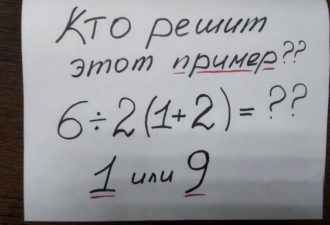 Кто решит
этот пример??
6÷2(1+2)=??
1 или 9